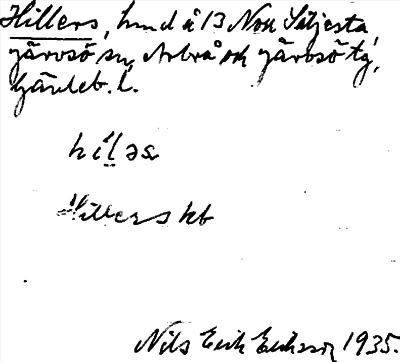 Hillers, hmd å 13 Norr Sätjesta,
Järvsö sn, Arbrå och Järvsö tg,
Gävleb. l.
hiləs
Hillers kb
Nils Erik Eriksson 1935.